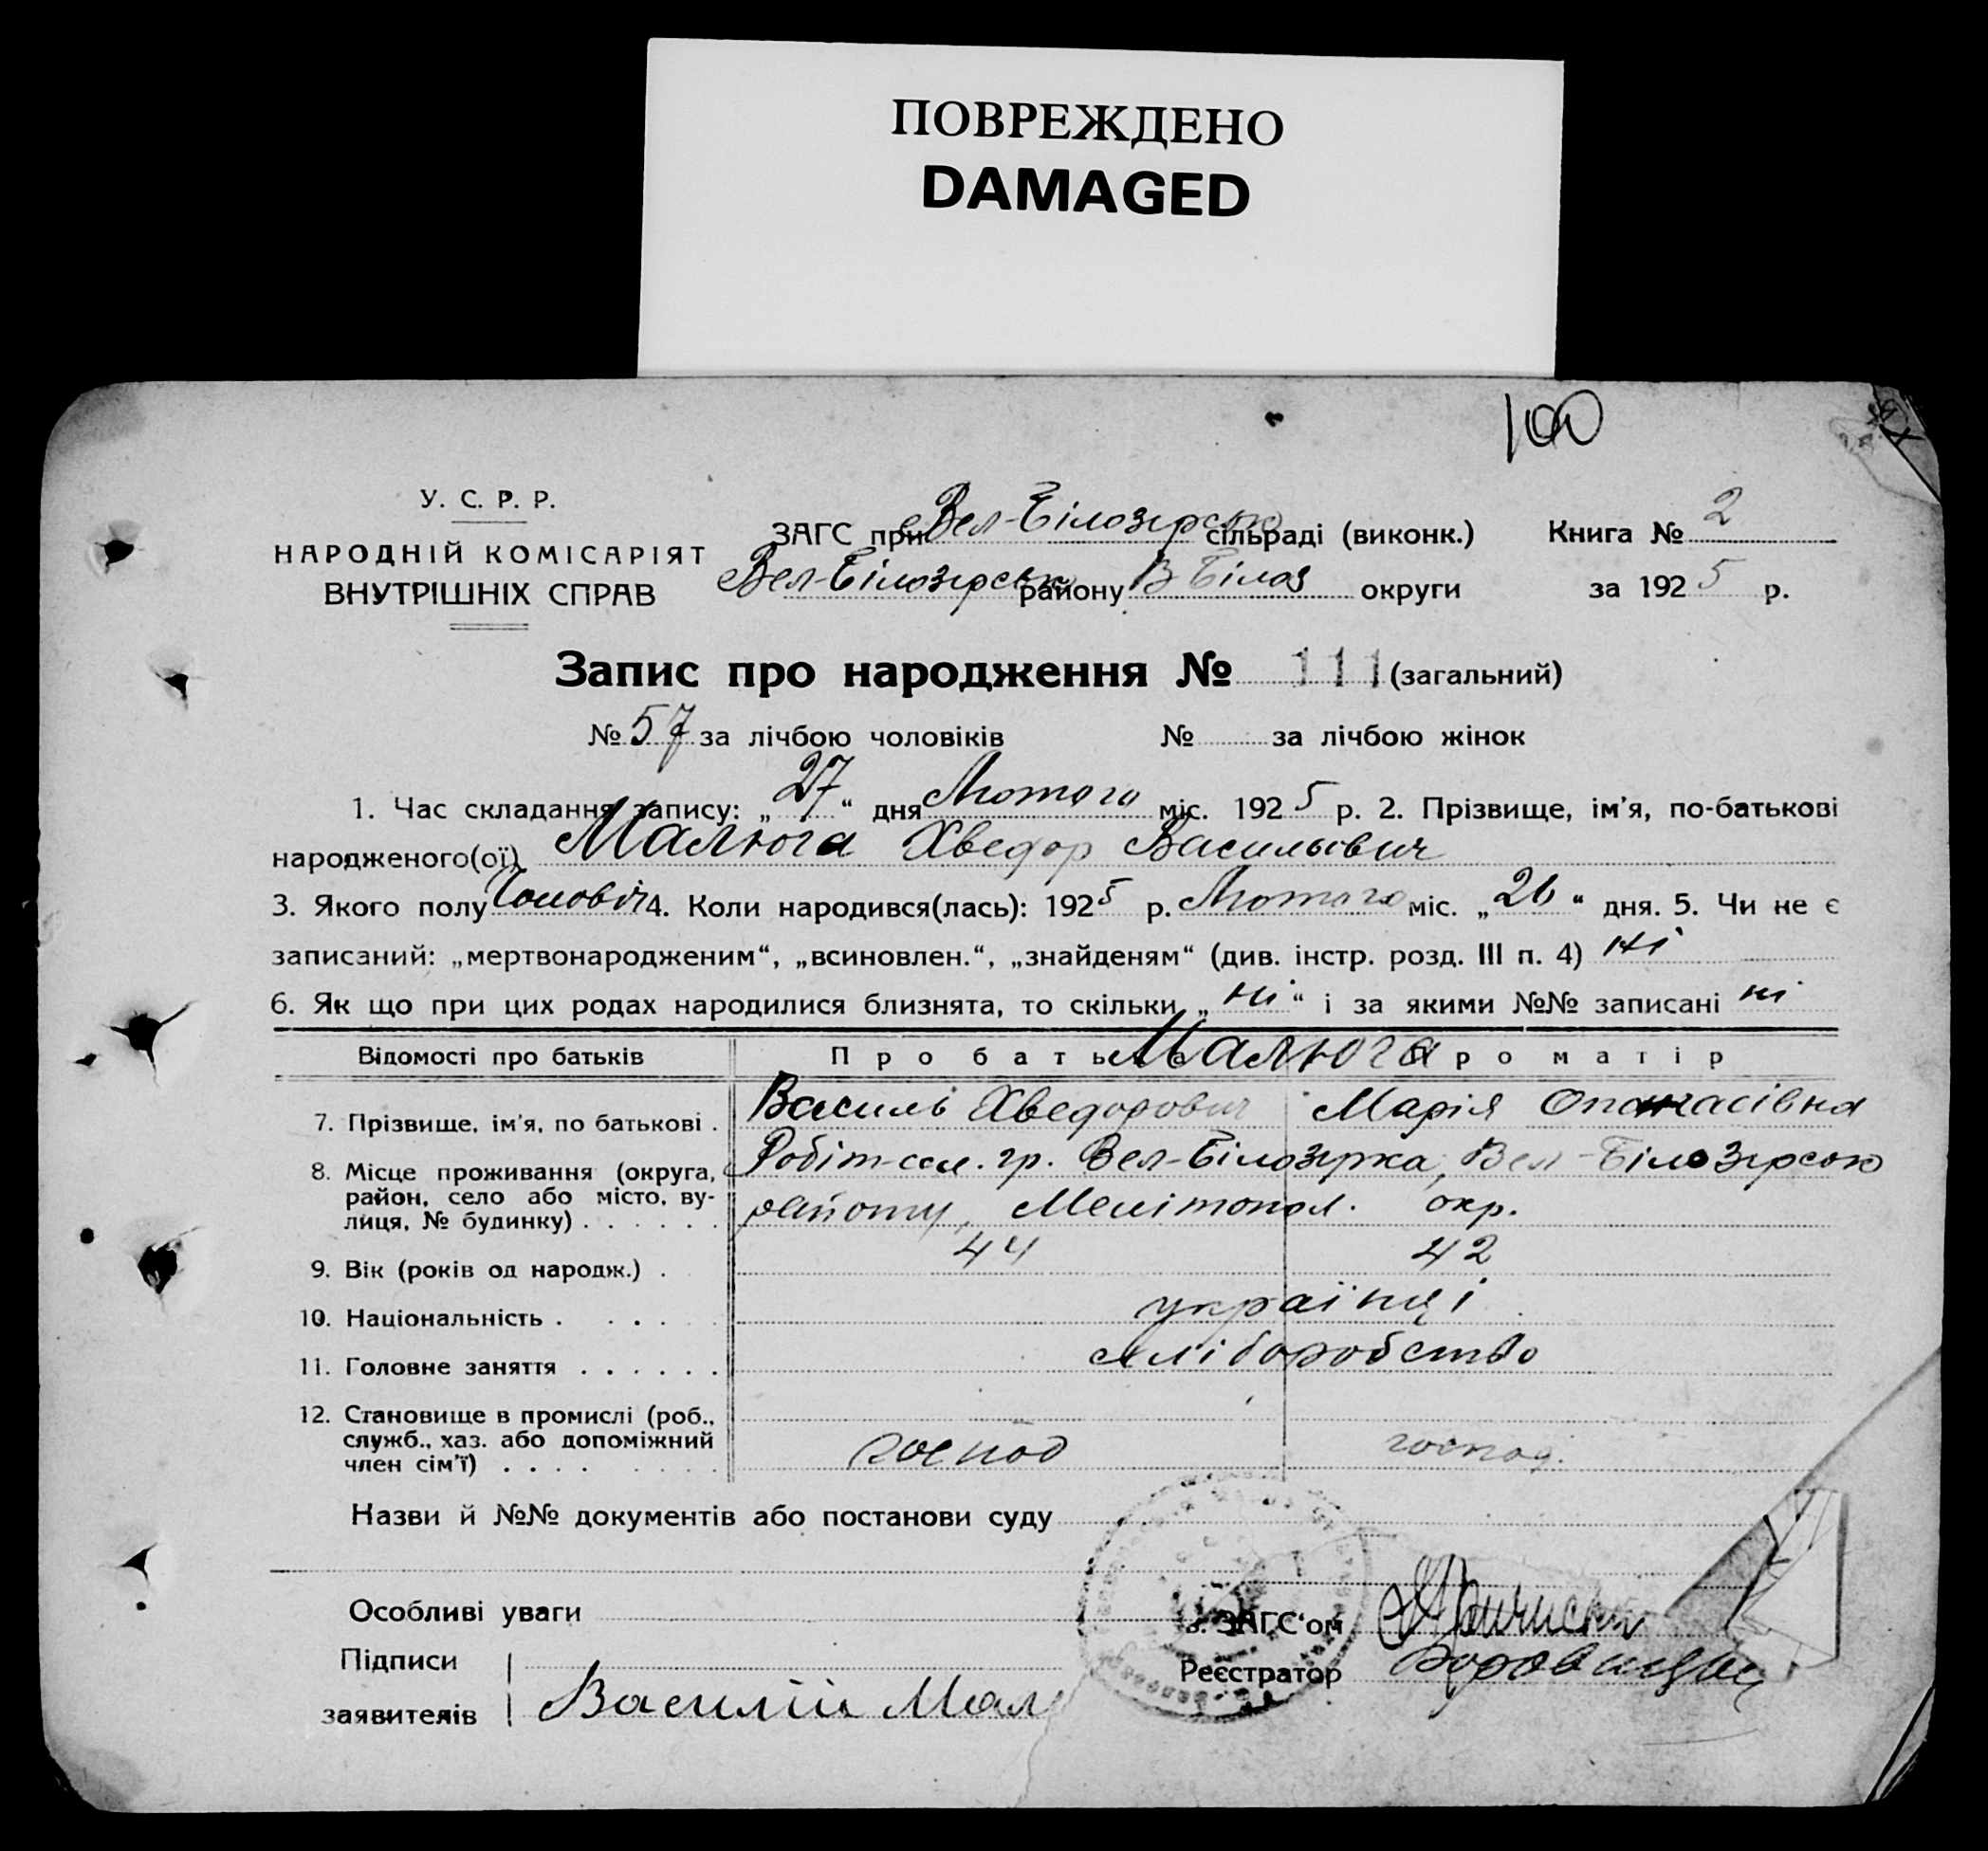 ПОВРЕЖДЕНО
DAMAGED
100
У. С. Р. Р.
НАРОДНІЙ КОМІСАРІЯТ
ВНУТРІШНІХ СПРАВ
ЗАГС при Вел-Білозірсько сільраді (виконк.) Книга № 2
Вел-Білозірсько району В Білоз округи за 1925 р.
Запис про народження № 111 (загальний)
№ 57 за лічбою чоловіків № за лічбою жінок
1. Час складання запису: „27“ дня Лютого міс. 1925 р. 2. Прізвище, ім’я, по-батькові
народженого(ої) Малюга Хведор Васильович
3. Якого полу Чоловіч 4. Коли народився(лась): 1925 р. Лютого міс. „26“ дня. 5. Чи не є
записаний: „мертвонародженим“, „всиновлен.“, „знайденям“ (див. інстр. розд. III п. 4) ні
6. Як що при цих родах народилися близнята, то скільки „ні“ і за якими №№ записані ні
Відомості про батьків Про батька Малюга Про матір
7. Прізвище, ім’я, по батькові . Василь Хведорович Марія Опанасівна
8. Місце проживання (округа, район, село або місто, вулиця, № будинку) . . . . . . Робіт-сел. гр. Вел-Білозірка, Вел-Білозірсько
району, Мелітопол. окр.
9. Вік (років од народж.) . 44 42
10. Національність . . . . . українці
11. Головне заняття . . . . . . хліборобство
12. Становище в промислі (роб., служб., хаз. або допоміжний член сім’ї) . . . . господ господ.
Назви й №№ документів або постанови суду
Особливі уваги
ЗАГС‘ом
Підписи
заявителів Василій Мал
Реєстратор